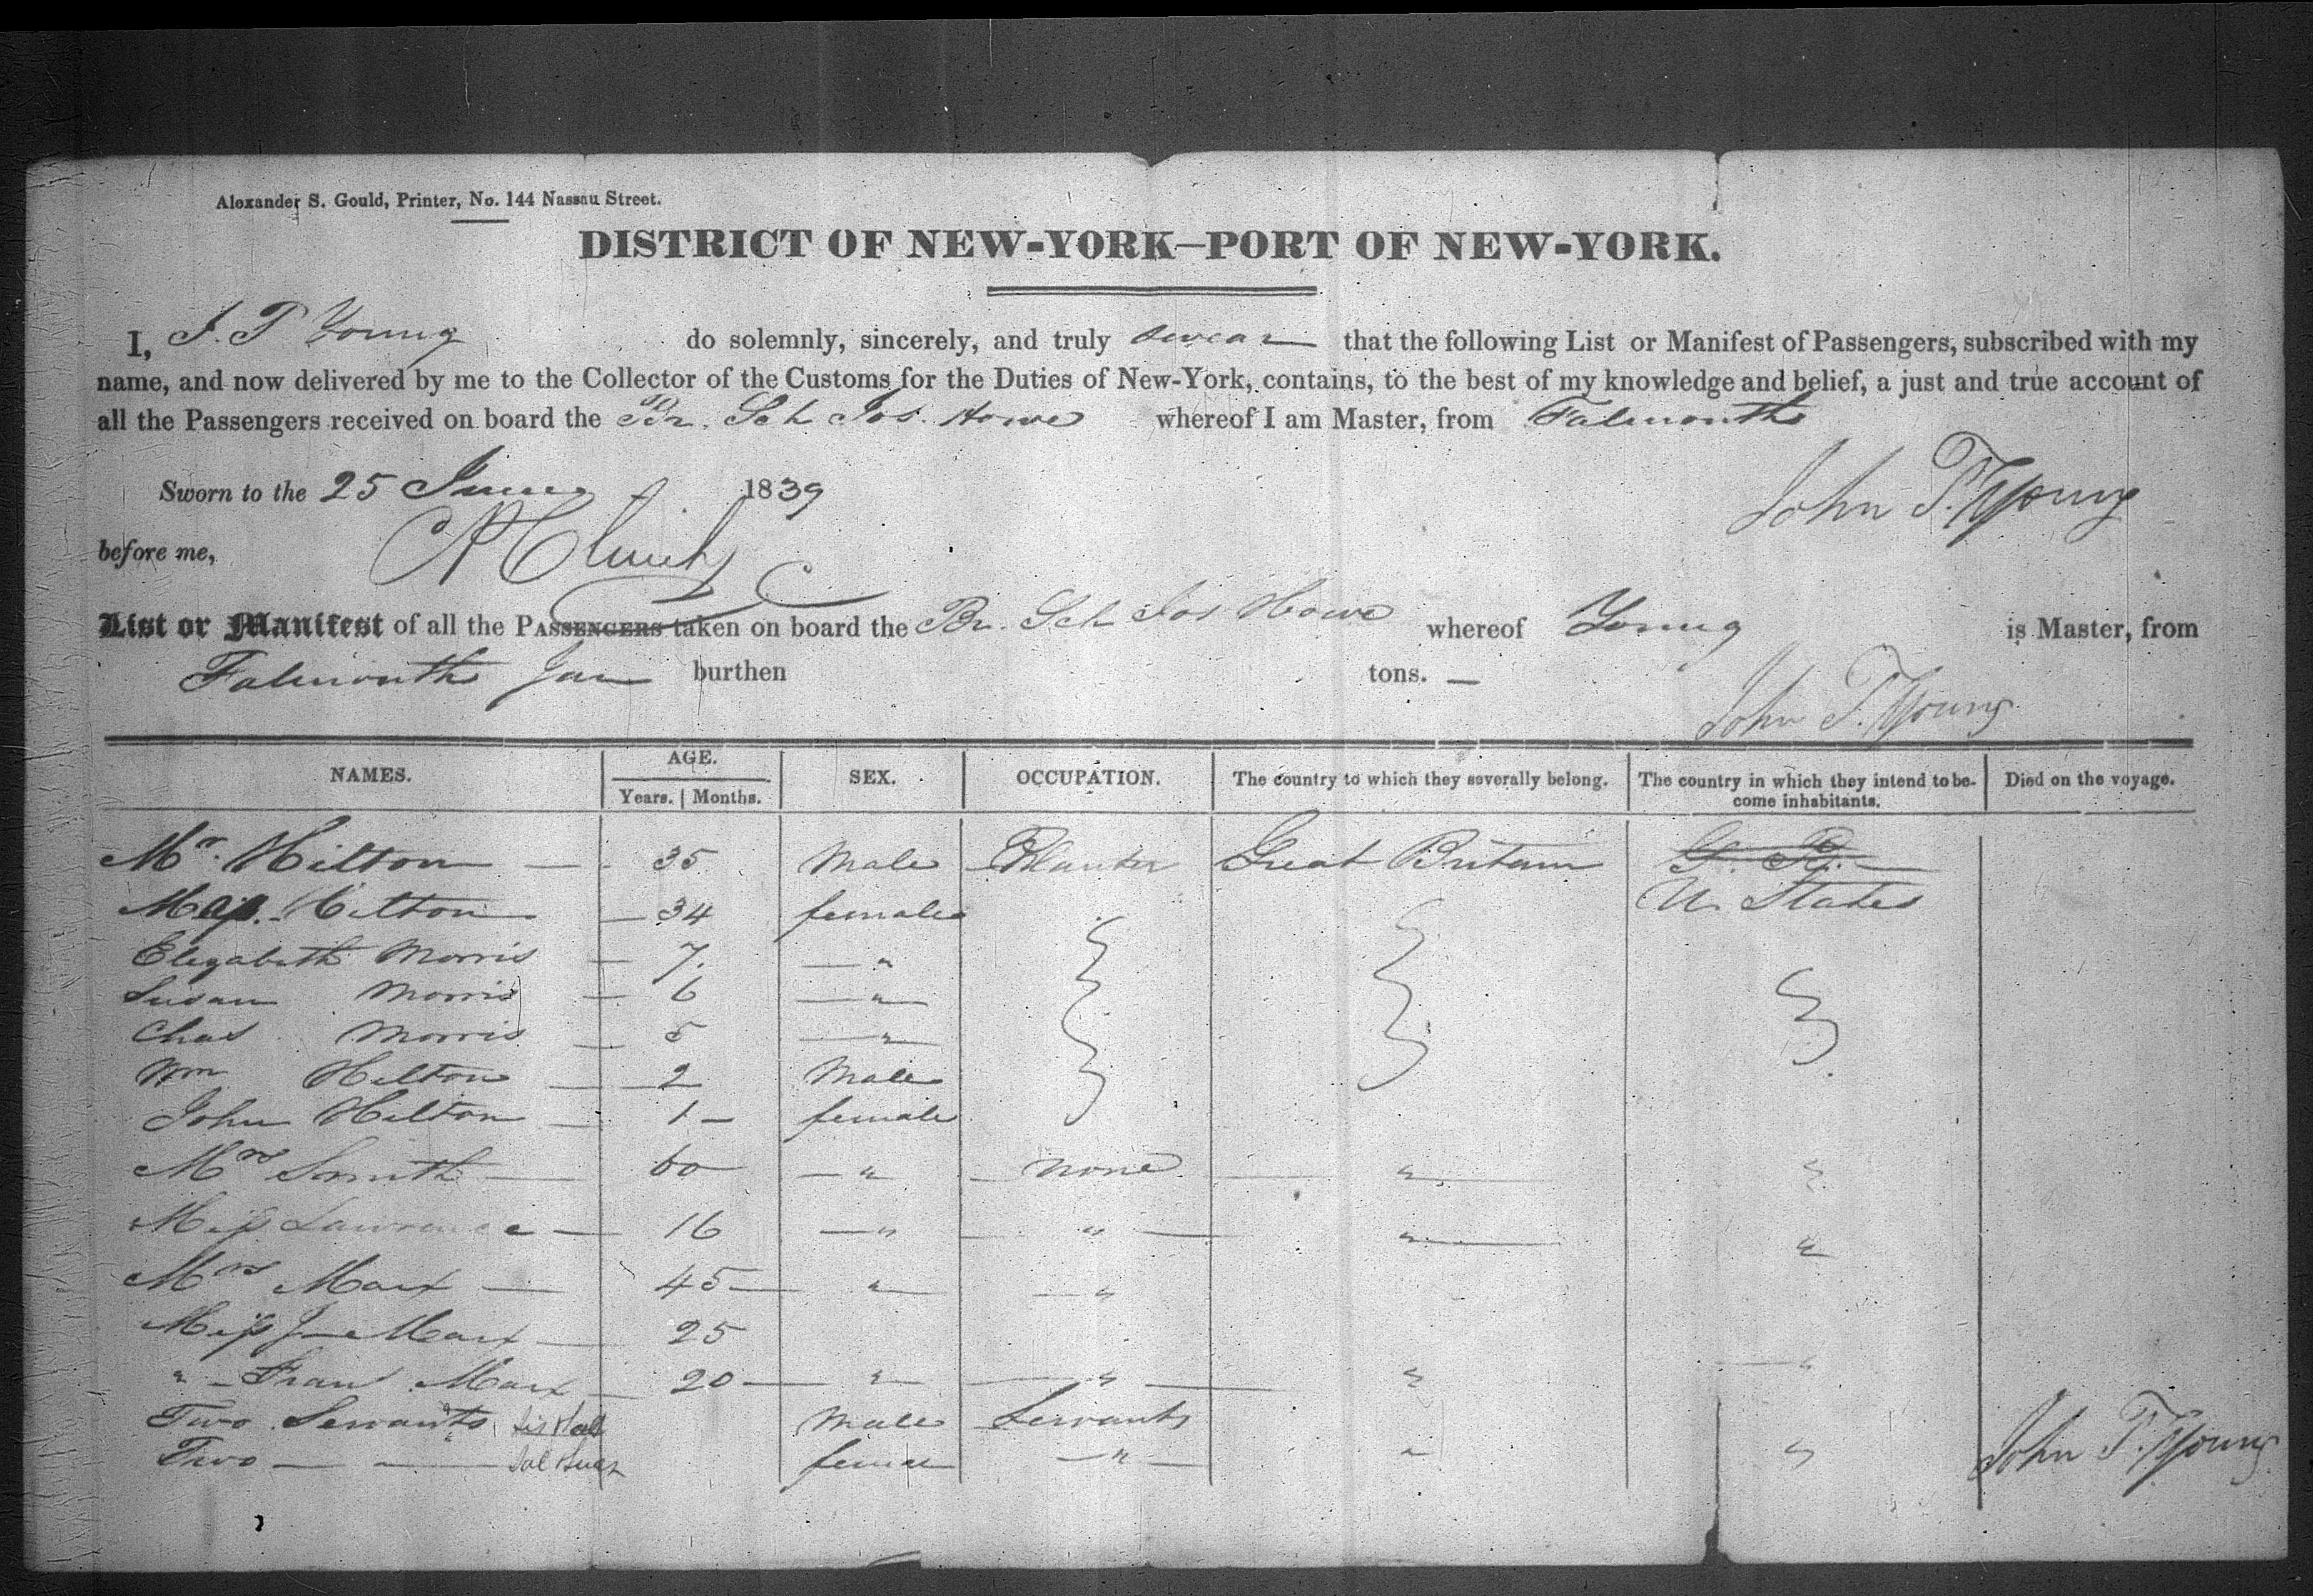 Alexander S. Gould, Printer, No. 144 Nassau Street.
DISTRICT OF NEW-YORK—PORT OF NEW-YORK.
I, J. T Young do solemnly, sincerely, and truly swear that the following List or Manifest of Passengers, subscribed with my
name, and now delivered by me to the Collector of the Customs for the Duties of New-York, contains, to the best of my knowledge and belief, a just and true account of
all the Passengers received on board the Br. Sch Jos. Howe whereof I am Master, from Falmouth
Sworn to the 25 June 1839 John T. Young
before me,
List or Manifest of all the PASSENGERS taken on board the Br. Sch Jos Howe whereof Young is Master, from
Falmouth Jam burthen tons. —
John T. Young
NAMES. AGE. Years. Months. SEX. OCCUPATION. The country to which they severally belong. The country in which they intend to become inhabitants. Died on the voyage.
Mr. Hilton — 35 Male Planter Great Britain G. B.
Hilton — 34 female U. States
Elizabeth Morris — 7. — "
Susan Morris — 6 — " —
Chas Morris — 5 — " —
Wm Hilton — 2 Male
John Hilton — 1 — female
Mrs Smith — 60 — " none — " — "
Miss Lawrence — 16 — " " — " — "
Mrs Marx — 45 — " — — "
Miss J—e Marx — 25
" — Fran Marx — 20 — " — — " — " — "
Two Servants Male Servants
Two — " — female — " — " " John T. Young